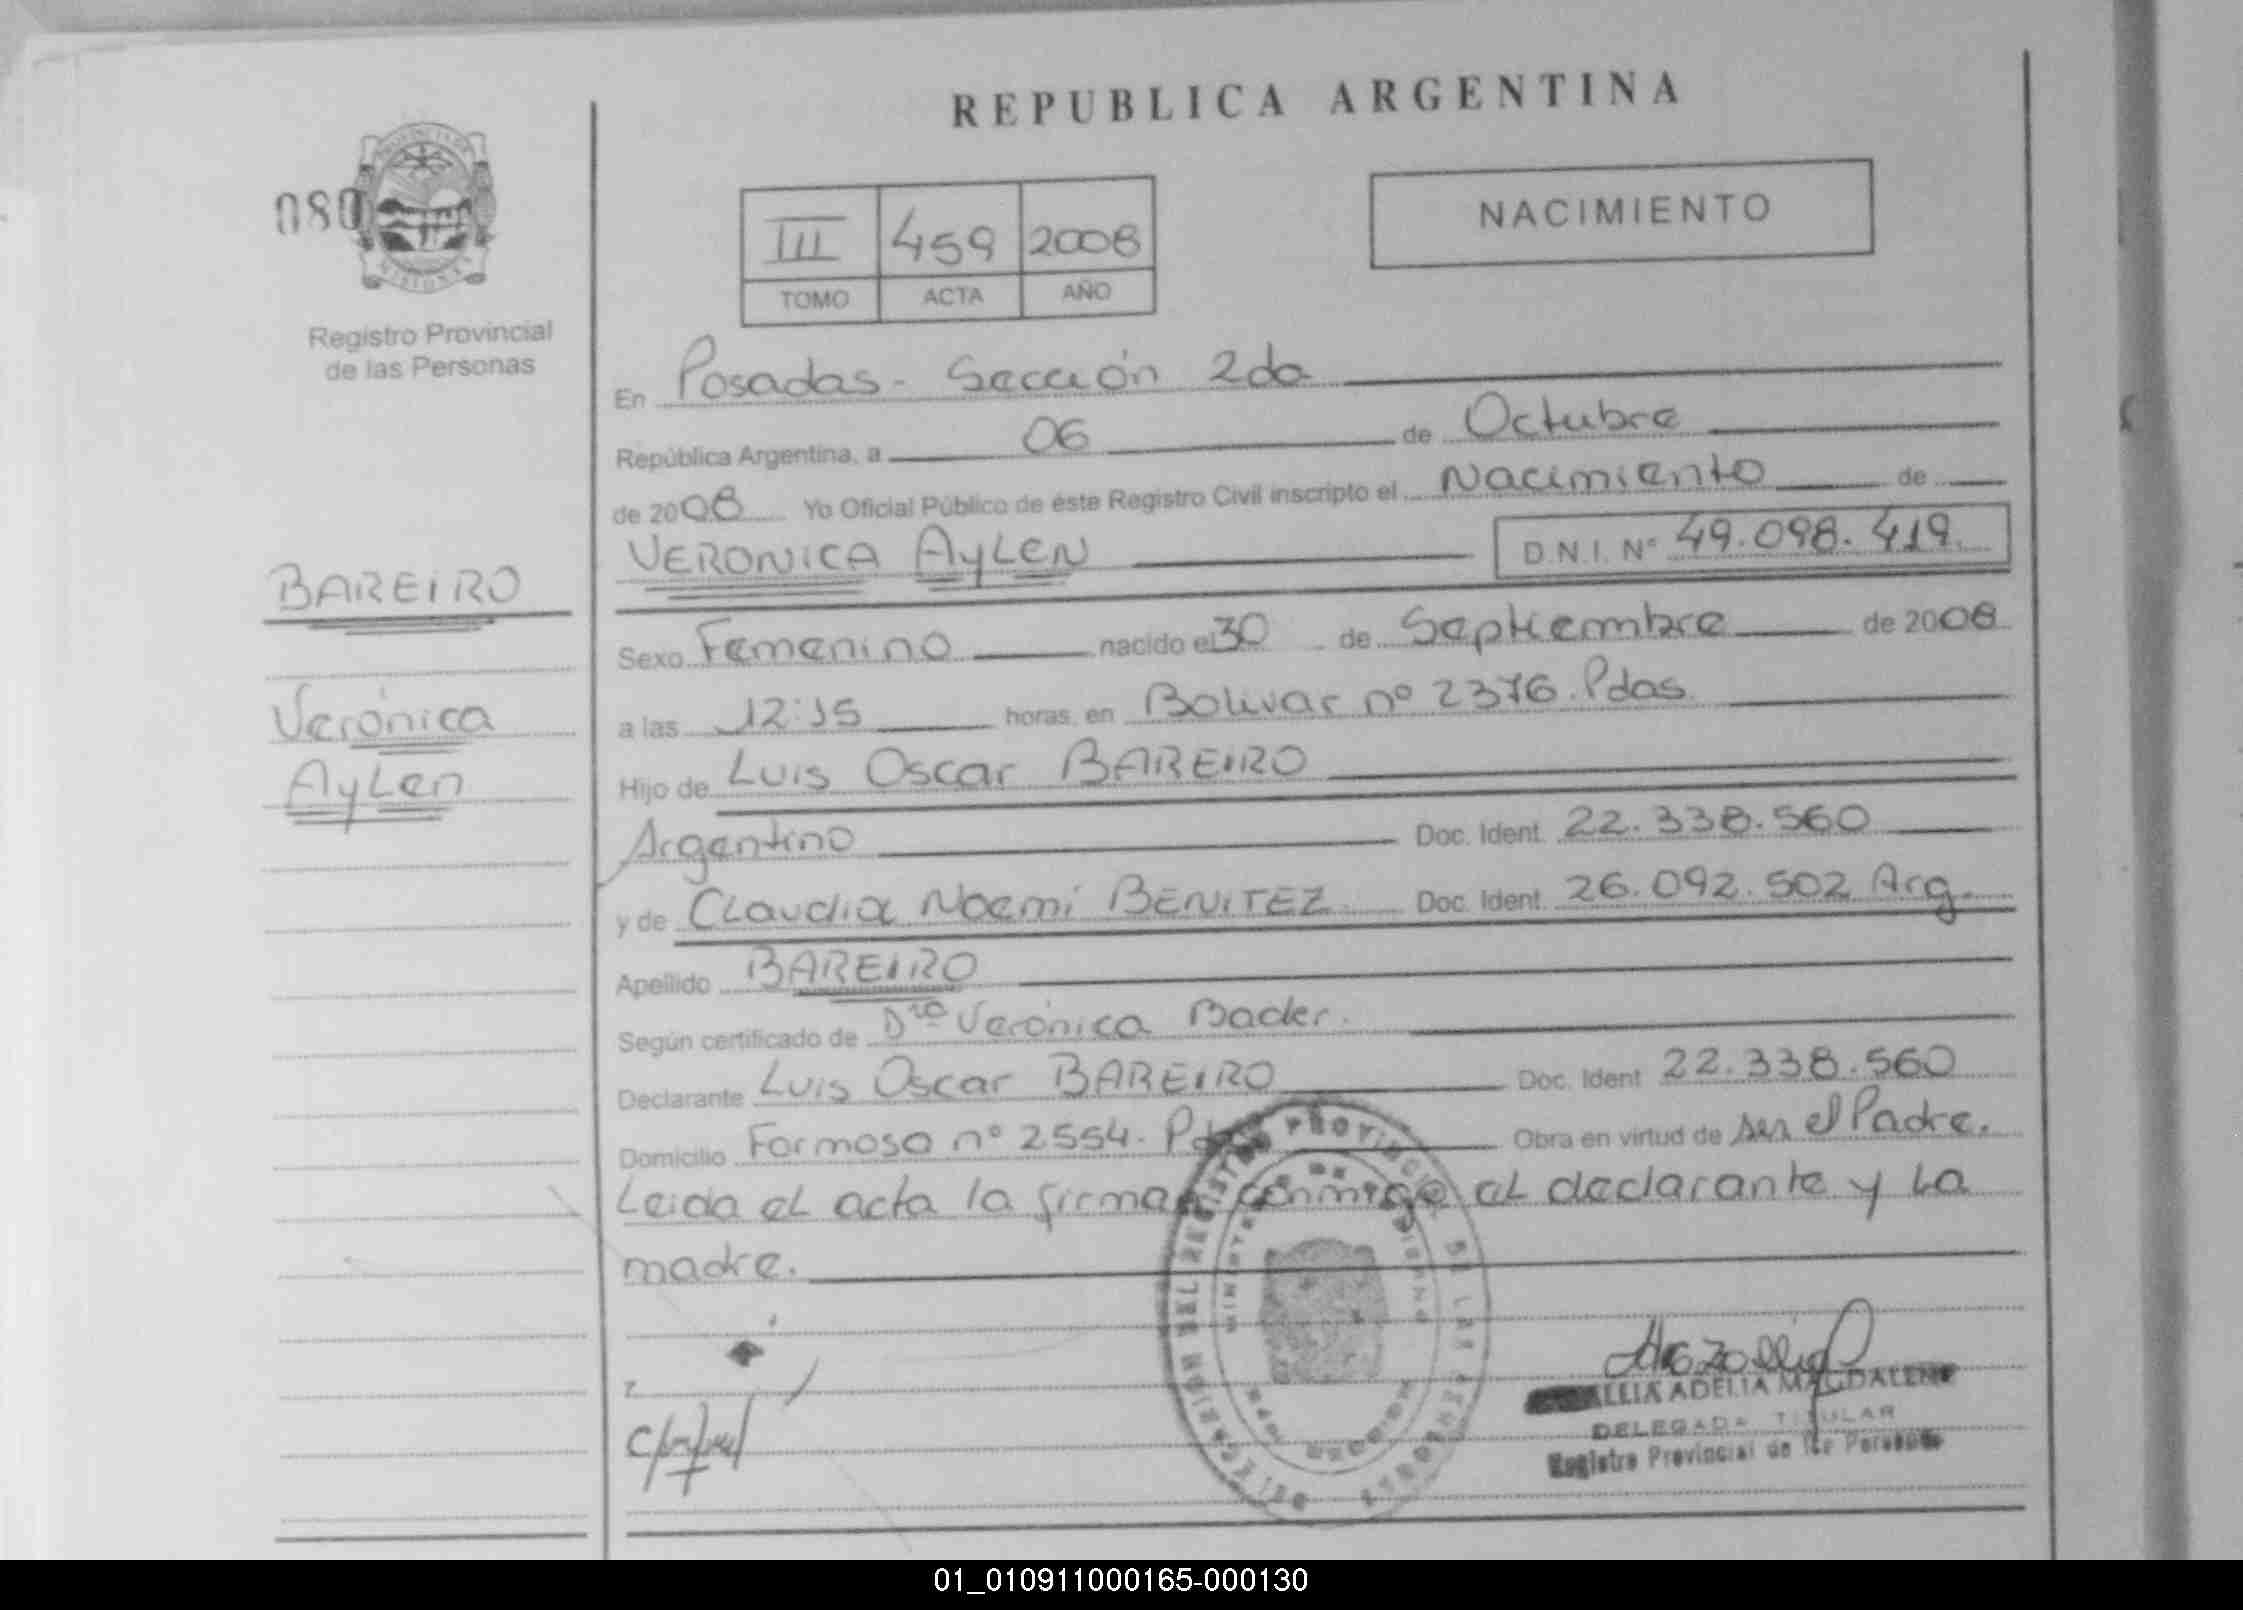 REPUBLICA ARGENTINA
080
PROVINCIA DE
MISIONES
Registro Provincial
de las Personas
III 459 2008
TOMO ACTA AÑO
NACIMIENTO
En Posadas - Sección 2da
República Argentina, a 06 de Octubre
de 2008 Yo Oficial Público de éste Registro Civil inscripto el Nacimiento de
VERONICA AYLEN D.N.I. Nº 49.098.419.
BAREIRO
Verónica
Aylen
Sexo Femenino nacido el 30 de Septiembre de 2008
a las 12:15 horas, en Bolivar nº 2376. Pdas.
Hijo de Luis Oscar BAREIRO
Argentino Doc. Ident. 22.338.560
y de Claudia Noemí BENITEZ Doc. Ident. 26.092.502 Arg.
Apellido BAREIRO
Según certificado de Dra Verónica Bader.
Declarante Luis Oscar BAREIRO Doc. Ident 22.338.560
Domicilio Formosa nº 2554. Obra en virtud de ser el Padre.
Leida el acta la firman conmigo el declarante y la
madre.
DIRECCION DEL REGISTRO PROVINCIAL DE LAS PERSONAS
ADELIA MAGDALENA
DELEGADA TITULAR
Registro Provincial de las Personas
01_010911000165-000130